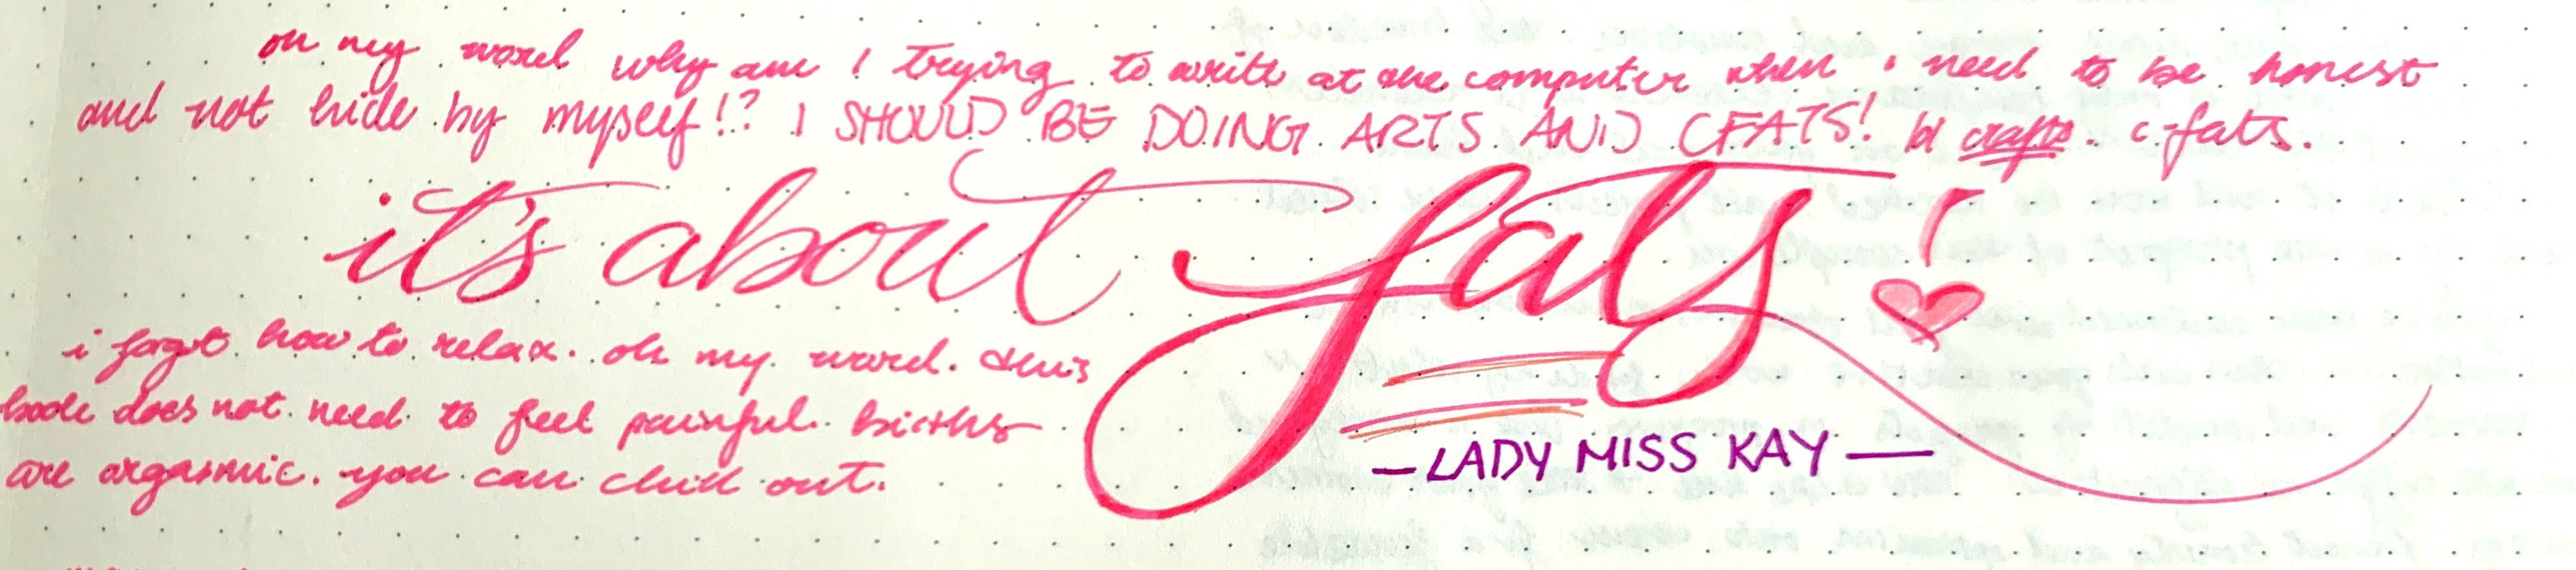 oh my word why am I trying to write at the computer when i need to be honest
and not hide by myself!? I SHOULD BE DOING ARTS AND CFATS! crafts. c-fats.
it's about fats!
i forgot how to relax. oh my word. this
book does not need to feel painful. births
are orgasmic. you can chill out.
—LADY MISS KAY—